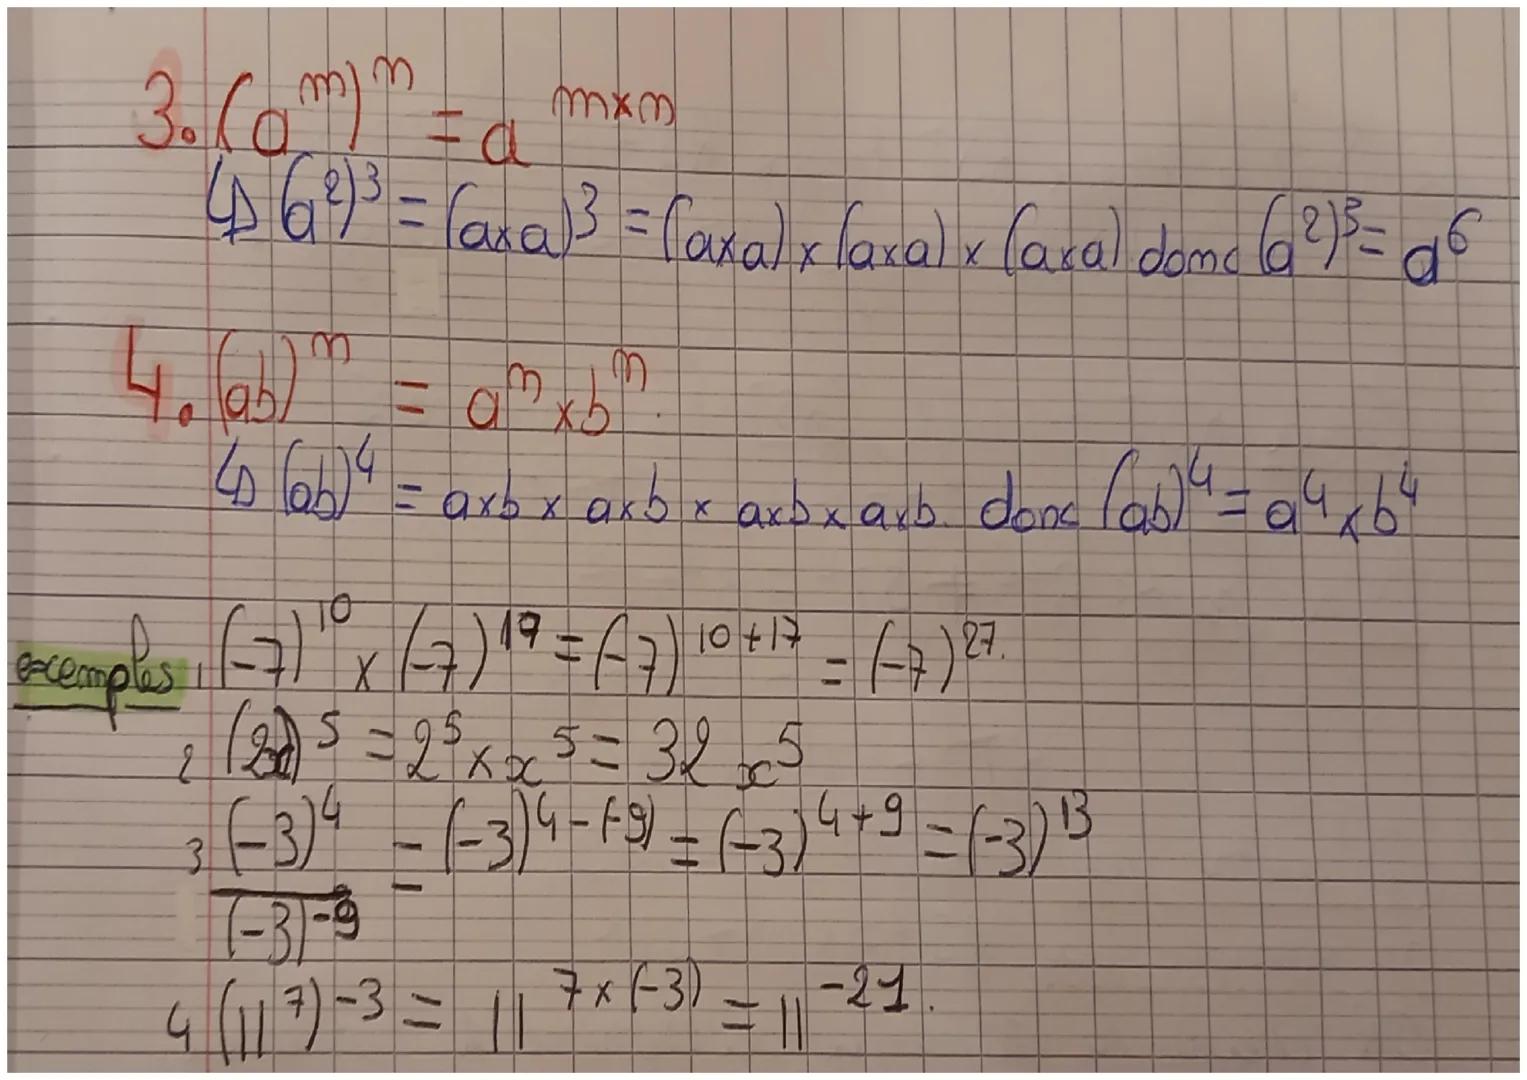 3. (a^m)^n = a^m×n
↳ (a²)³ = (a×a)³ = (a×a) × (a×a) × (a×a) donc (a²)³ = a⁶
4. (ab)^n = a^n × b^n.
↳ (ab)⁴ = a×b × a×b × a×b × a×b. donc (ab)⁴ = a⁴ × b⁴
exemples 1 (-7)¹⁰ × (-7)¹⁷ = (-7)¹⁰⁺¹⁷ = (-7)²⁷.
2 (2x)⁵ = 2⁵ × x⁵ = 32 x⁵
3 (-3)⁴/(-3)⁻⁹ = (-3)^4-(-9) = (-3)⁴⁺⁹ = (-3)¹³
4 (11⁷)⁻³ = 11^7×(-3) = 11⁻²¹.